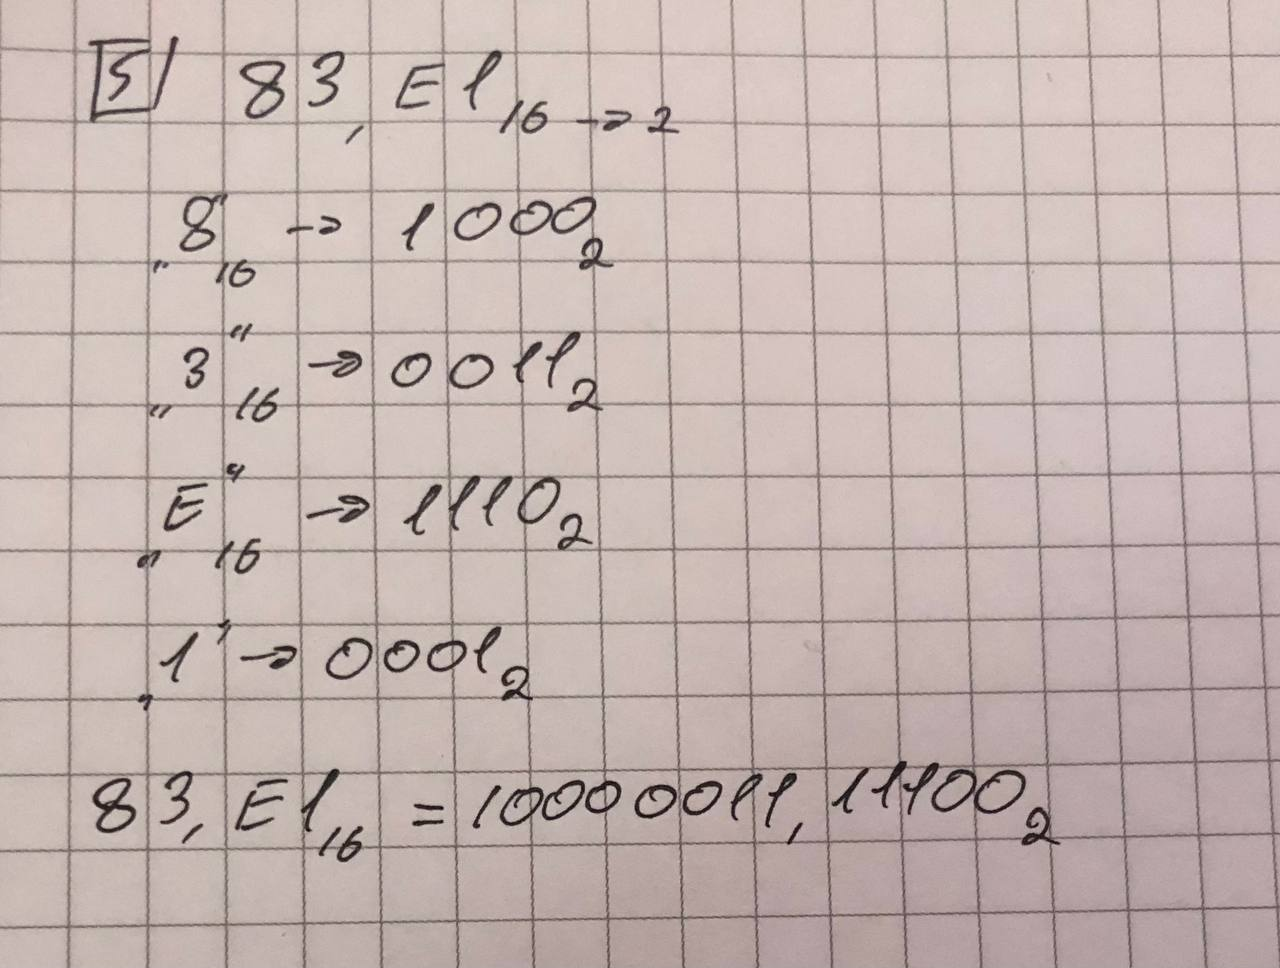 5 83,E1₁₆→2
„8"₁₆ → 1000₂
„3"₁₆ → 0011₂
„E"₁₆ → 1110₂
„1" → 0001₂
83,E1₁₆ = 10000011,11100₂